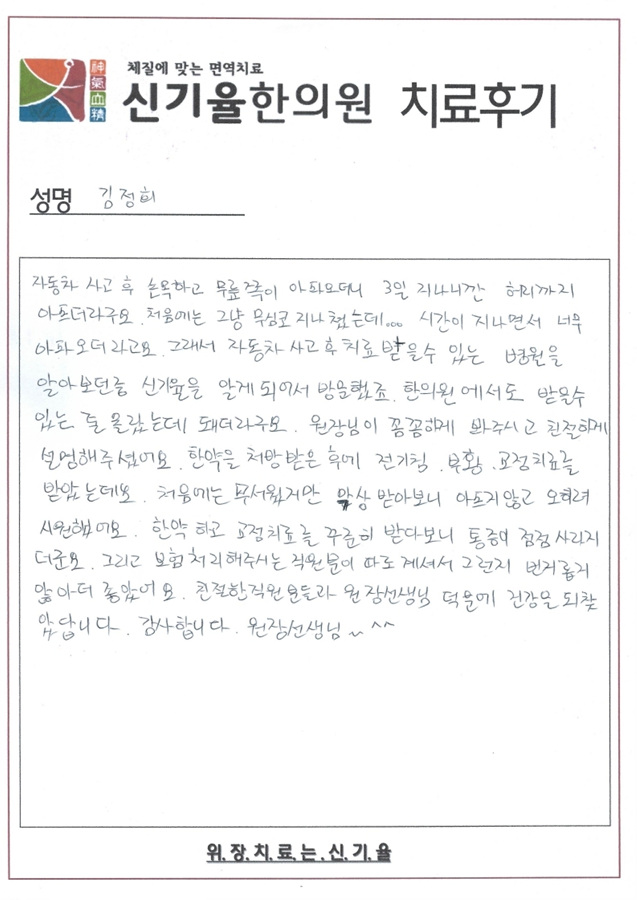 神氣血精
체질에 맞는 면역치료
신기율한의원 치료후기
성명 김정희
자동차 사고 후 손목하고 무릎쪽이 아파오더니 3일 지나니깐 허리까지
아프더라구요. 처음에는 그냥 무심코 지나쳤는데... 시간이 지나면서 너무
아파오더라고요. 그래서 자동차 사고 후 치료 받을수 있는 병원을
알아보던중 신기율을 알게 되어서 방문했죠. 한의원에서도 받을수
있는 줄 몰랐는데 돼더라구요. 원장님이 꼼꼼하게 봐주시고 친절하게
설명해주셨어요. 한약을 처방받은 후에 전기침. 부황. 교정치료를
받았는데요. 처음에는 무서웠지만 막상 받아보니 아프지않고 오히려
시원했어요. 한약 하고 교정치료를 꾸준히 받다보니 통증이 점점 사라지
더군요. 그리고 보험처리해주시는 직원분이 따로 계셔서 그런지 번거롭지
않아 더 좋았어요. 친절한직원분들과 원장선생님 덕분에 건강을 되찾
았답니다. 감사합니다. 원장선생님~ ^^
위.장.치.료.는.신.기.율